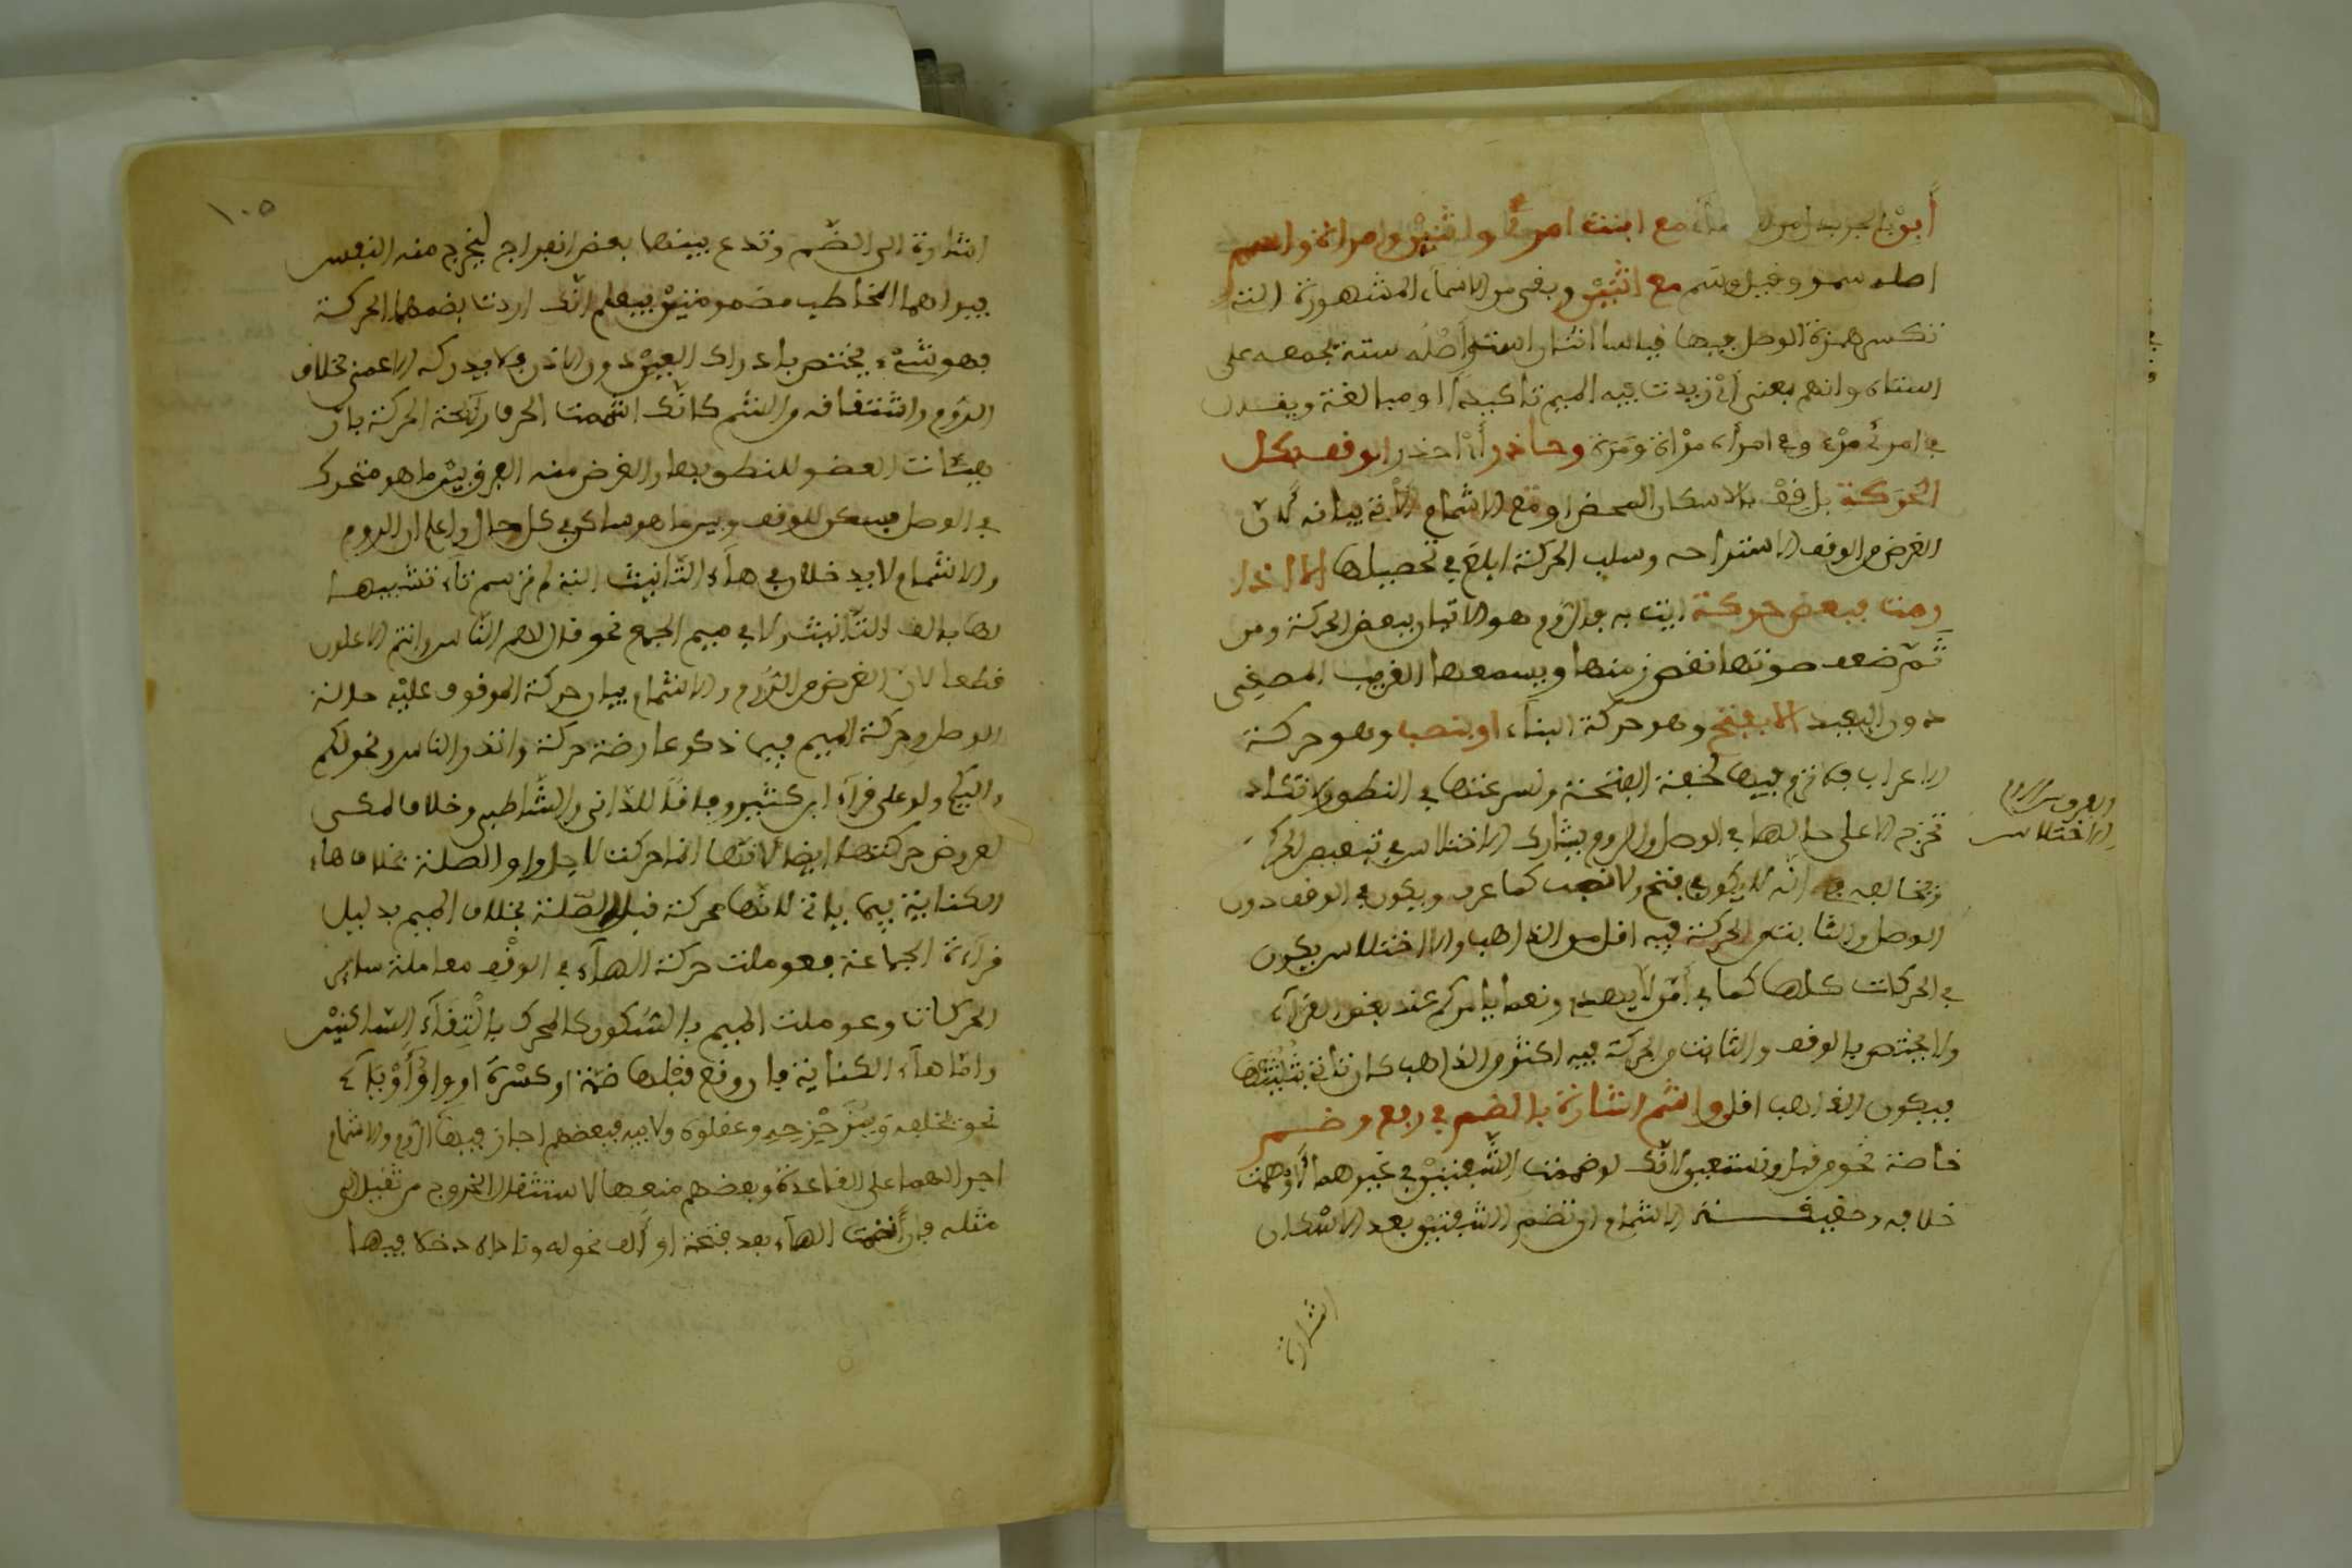 مع ابنت امرئ واثنين وامراة واسم
اصله سمو وقيل وسم مع اثنتين وبقي من الاسماء المشهورة التي
تكسر همزة الوصل فيها قياسا است واصله سته لجمعه على
استاه وابنم بمعنى ابن زيدت فيه الميم تاكيدا او مبالغة ويقال
في امرئ مرء وفي امراة مراة ومرة وحاذر أي احذر الوقف بكل
الحركة بل قف بالاسكان المحض او مع الاشمام الآتي بيانه لان
الغرض من الوقف الاستراحة وسلب الحركة ابلغ في تحصيلها الا اذا
رمت فبعض حركة ايت به فالروم هو الاتيان ببعض الحركة ومن
ثم ضعف صوتها لقصر زمنها ويسمعها القريب المصغى
دون البعيد الا بفتح وهو حركة البناء او بنصب وهو حركة
الاعراب فلا ترم فيها لخفة الفتحة وسرعتها في النطق ولا تكاد
تخرج الا على حالها في الوصل والروم يشارك الاختلاس في تبعيض الحركة
والفرق بين الروم
والاختلاس
ويخالفه في انه لا يكون في فتح ولا نصب كما عرف ويكون في الوقف دون
الوصل والثابت من الحركة فيه اقل من الذاهب والاختلاس يكون
في الحركات كلها كما في أمن لا يهدي ونعما يامركم عند بعض القراء
ولا يختص بالوقف والثابت من الحركة فيه اكثر من الذاهب كان تاتي بثلثيها
فيكون الذاهب اقل واشم اشارة بالضم في رفع وضم
خاصة نحو من قبل ونستعين لانك لو ضممت الشفتين في غيرهما لاوهمت
خلافه وحقيقة الاشمام ان تضم الشفتين بعد الاسكان
اشارة
١٠٥
اشارة الى الضم وتدع بينهما بعض انفراج ليخرج منه النفس
فيراهما المخاطب مضمومتين فيعلم انك اردت بضمهما الحركة
فهو شيء يختص بادراك العين دون الاذن فلا يدركه الاعمى بخلاف
الروم واشتقاقه من الشم كانك اشممت الحرف رائحة الحركة بان
هيات العضو للنطق بها والغرض منه الفرق بين ما هو متحرك
في الوصل فسكن للوقف وبين ما هو ساكن في كل حال واعلم ان الروم
والاشمام لا يدخلان في هاء التانيث التي لم ترسم تاء تشبيها
لها بالف التانيث ولا في ميم الجمع نحو قال لهم الناس وانتم الاعلون
قطعا لان الغرض من الروم والاشمام بيان حركة الموقوف عليه حالة
الوصل وحركة الميم فيما ذكر عارضة حركة وانذر الناس ونحو لكم
واليكم ولو على قراءة ابن كثير وفاقا للداني والشاطبي وخلافا لمكي
لعروض حركتها ايضا لانها انما حركت لاجل واو الصلة بخلاف هاء
الكناية فيما ياتي لانها محركة قبل الصلة بخلاف الميم بدليل
قراءة الجماعة فعوملت حركة الهاء في الوقف معاملة سائر
الحركات وعوملت الميم بالسكون كالمحرك بالتقاء الساكنين
واما هاء الكناية فان وقع قبلها ضمة او كسرة او واو أو ياء
نحو يخلفه وبمزحزحه وعقلوه ولابيه فبعضهم اجاز فيها الروم والاشمام
اجرا لهما على القاعدة وبعضهم منعها لاستثقال الخروج من ثقيل الى
مثله فان انفتحت الهاء بعد فتحة او الف نحو له وناداه دخلا فيها